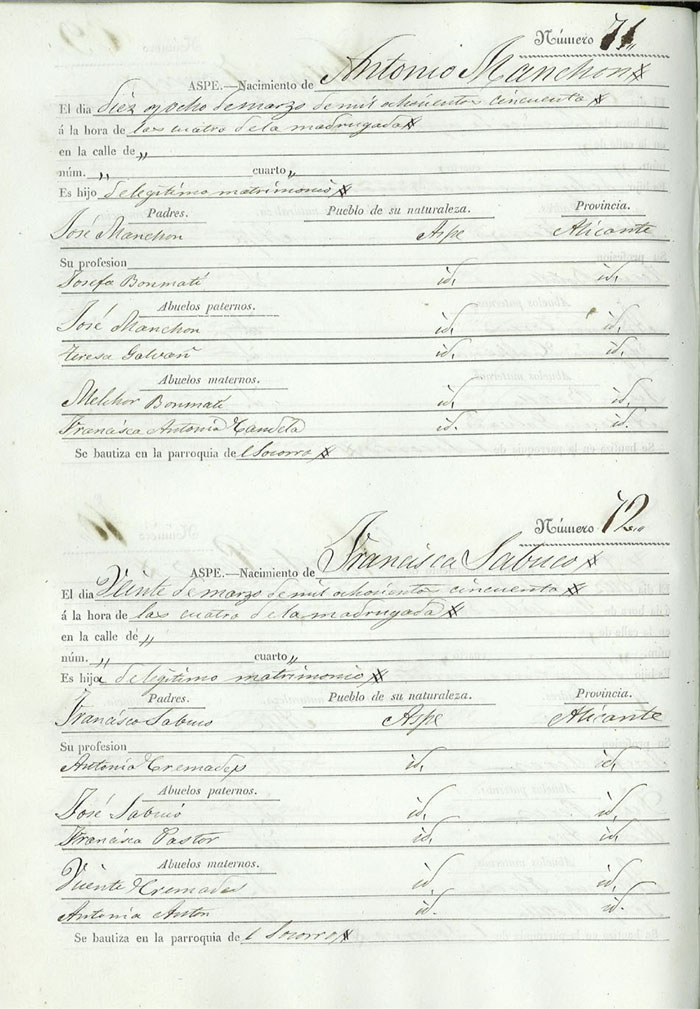 Número 71
ASPE.—Nacimiento de Antonio Manchon
El dia diez y ocho de marzo de mil ochocientos cincuenta
á la hora de las cuatro de la madrugada
en la calle de „
núm. „ cuarto „
Es hijo de legitimo matrimonio
Padres. Pueblo de su naturaleza. Provincia.
José Manchon Aspe Alicante
Su profesion
Josefa Bonmatí id. id.
Abuelos paternos.
José Manchon id. id.
Teresa Galvañ id. id.
Abuelos maternos.
Melchor Bonmatí id. id.
Francisca Antonia Candela id. id.
Se bautiza en la parroquia del Socorro
Número 72
ASPE.—Nacimiento de Francisca Sabuco
El dia Veinte de marzo de mil ochocientos cincuenta
á la hora de las cuatro de la madrugada
en la calle de „
núm. „ cuarto „
Es hija de legitimo matrimonio
Padres. Pueblo de su naturaleza. Provincia.
Francisco Sabuco Aspe Alicante
Su profesion
Antonia Cremades id. id.
Abuelos paternos.
José Sabuco id. id.
Francisca Pastor id. id.
Abuelos maternos.
Vicente Cremades id. id.
Antonia Anton id. id.
Se bautiza en la parroquia del Socorro